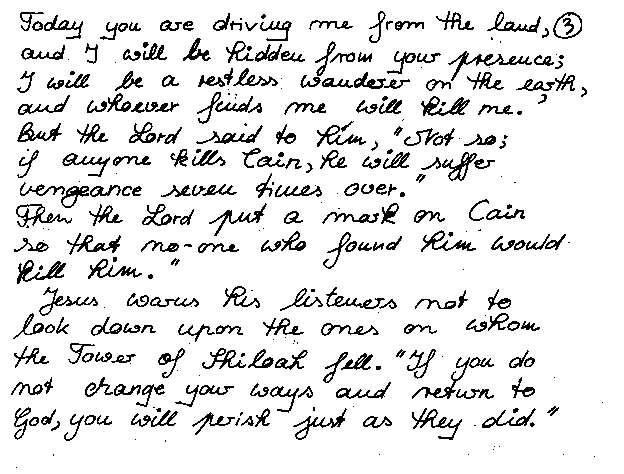 Today you are driving me from the land, ③
and I will be hidden from your presence;
I will be a restless wanderer on the earth,
and whoever finds me will kill me."
But the Lord said to him, "Not so;
if anyone kills Cain, he will suffer
vengeance seven times over."
Then the Lord put a mark on Cain
so that no-one who found him would
kill him."
Jesus warns his listeners not to
look down upon the ones on whom
the Tower of Shiloah fell. "If you do
not change your ways and return to
God, you will perish just as they did."